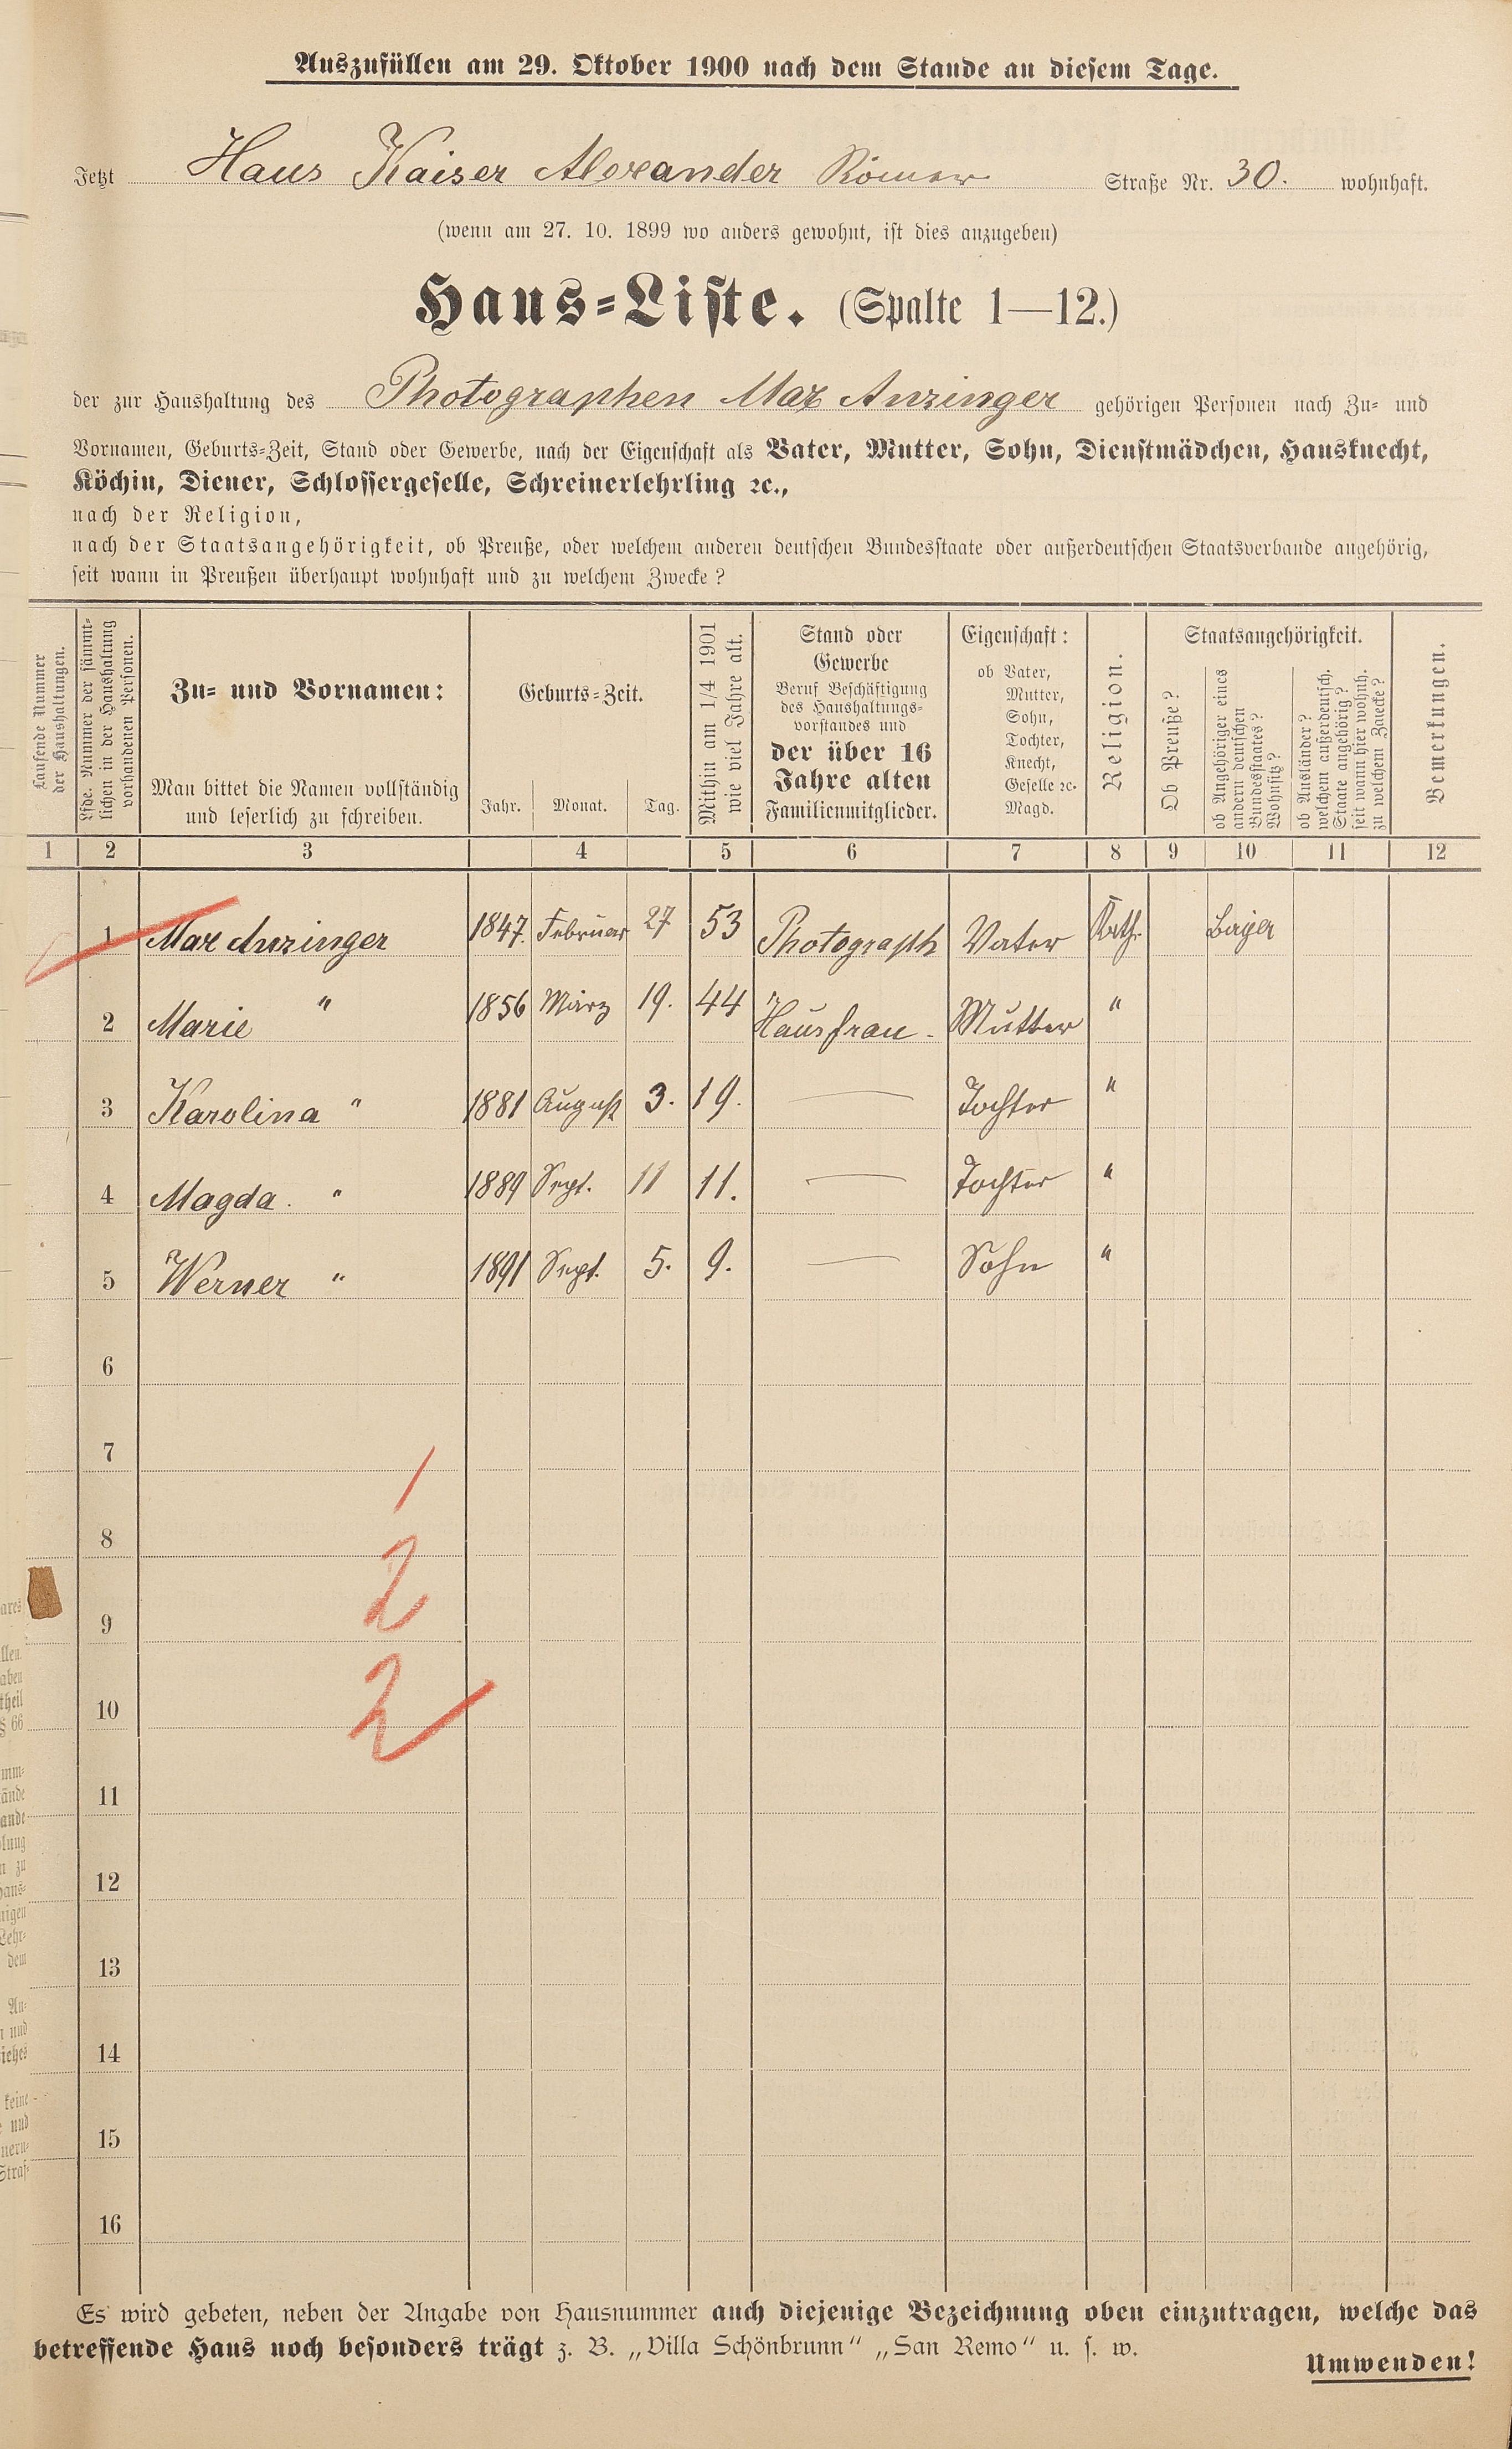 Auszufüllen am 29. Oktober 1900 nach dem Stande an diesem Tage.
Jetzt Haus Kaiser Alexander Römer Straße Nr. 30. wohnhaft.
(wenn am 27. 10. 1899 wo anders gewohnt, ist dies anzugeben)
Haus-Liste. (Spalte 1—12.)
der zur Haushaltung des Photographen Max Anzinger gehörigen Personen nach Zu- und
Vornamen, Geburts-Zeit, Stand oder Gewerbe, nach der Eigenschaft als Vater, Mutter, Sohn, Dienstmädchen, Hausknecht,
Köchin, Diener, Schlossergeselle, Schreinerlehrling ꝛc.,
nach der Religion,
nach der Staatsangehörigkeit, ob Preuße, oder welchem anderen deutschen Bundesstaate oder außerdeutschen Staatsverbande angehörig,
seit wann in Preußen überhaupt wohnhaft und zu welchem Zwecke?
Laufende Nummer
der Haushaltungen.
Lfde. Nummer der sämmt-
lichen in der Haushaltung
vorhandenen Personen.
Zu- und Vornamen:
Man bittet die Namen vollständig
und leserlich zu schreiben.
Geburts-Zeit.
Jahr. Monat. Tag.
Mithin am 1/4 1901
wie viel Jahre alt.
Stand oder
Gewerbe
Beruf Beschäftigung
des Haushaltungs-
vorstandes und
der über 16
Jahre alten
Familienmitglieder.
Eigenschaft:
ob Vater,
Mutter,
Sohn,
Tochter,
Knecht,
Geselle ꝛc.
Magd.
Religion.
Staatsangehörigkeit.
Ob Preuße?
ob Angehöriger eines
andern deutschen
Bundesstaates?
Wohnsitz?
ob Ausländer?
welchem außerdeutsch.
Staate angehörig?
seit wann hier wohnh.
zu welchem Zwecke?
Bemerkungen.
1 2 3 4 5 6 7 8 9 10 11 12
1 Max Anzinger 1847. Februar 27 53 Photograph Vater Kath. Bayer
2 Marie " 1856 März 19. 44 Hausfrau - Mutter "
3 Karolina " 1881 August 3. 19. — Tochter "
4 Magda. " 1889 Sept. 11 11. — Tochter "
5 Werner " 1891 Sept. 5. 9. — Sohn "
6
7
1
8
2
9
2
10
11
12
13
14
15
16
Es wird gebeten, neben der Angabe von Hausnummer auch diejenige Bezeichnung oben einzutragen, welche das
betreffende Haus noch besonders trägt z. B. „Villa Schönbrunn“ „San Remo“ u. s. w.
Umwenden!